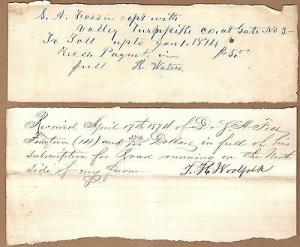 S. A. acpt with
Valley Turnpike co. at Gate No 3
To Toll up to Jan 1, 1874 $5.00
Recd. Payment in
full H. Waters
Received April 17th 1874 of D. & A.
Fourteen (14) and Dollars, in full of his
subscription for Road running on the North
side of my Farm. T. H. Woolfolk